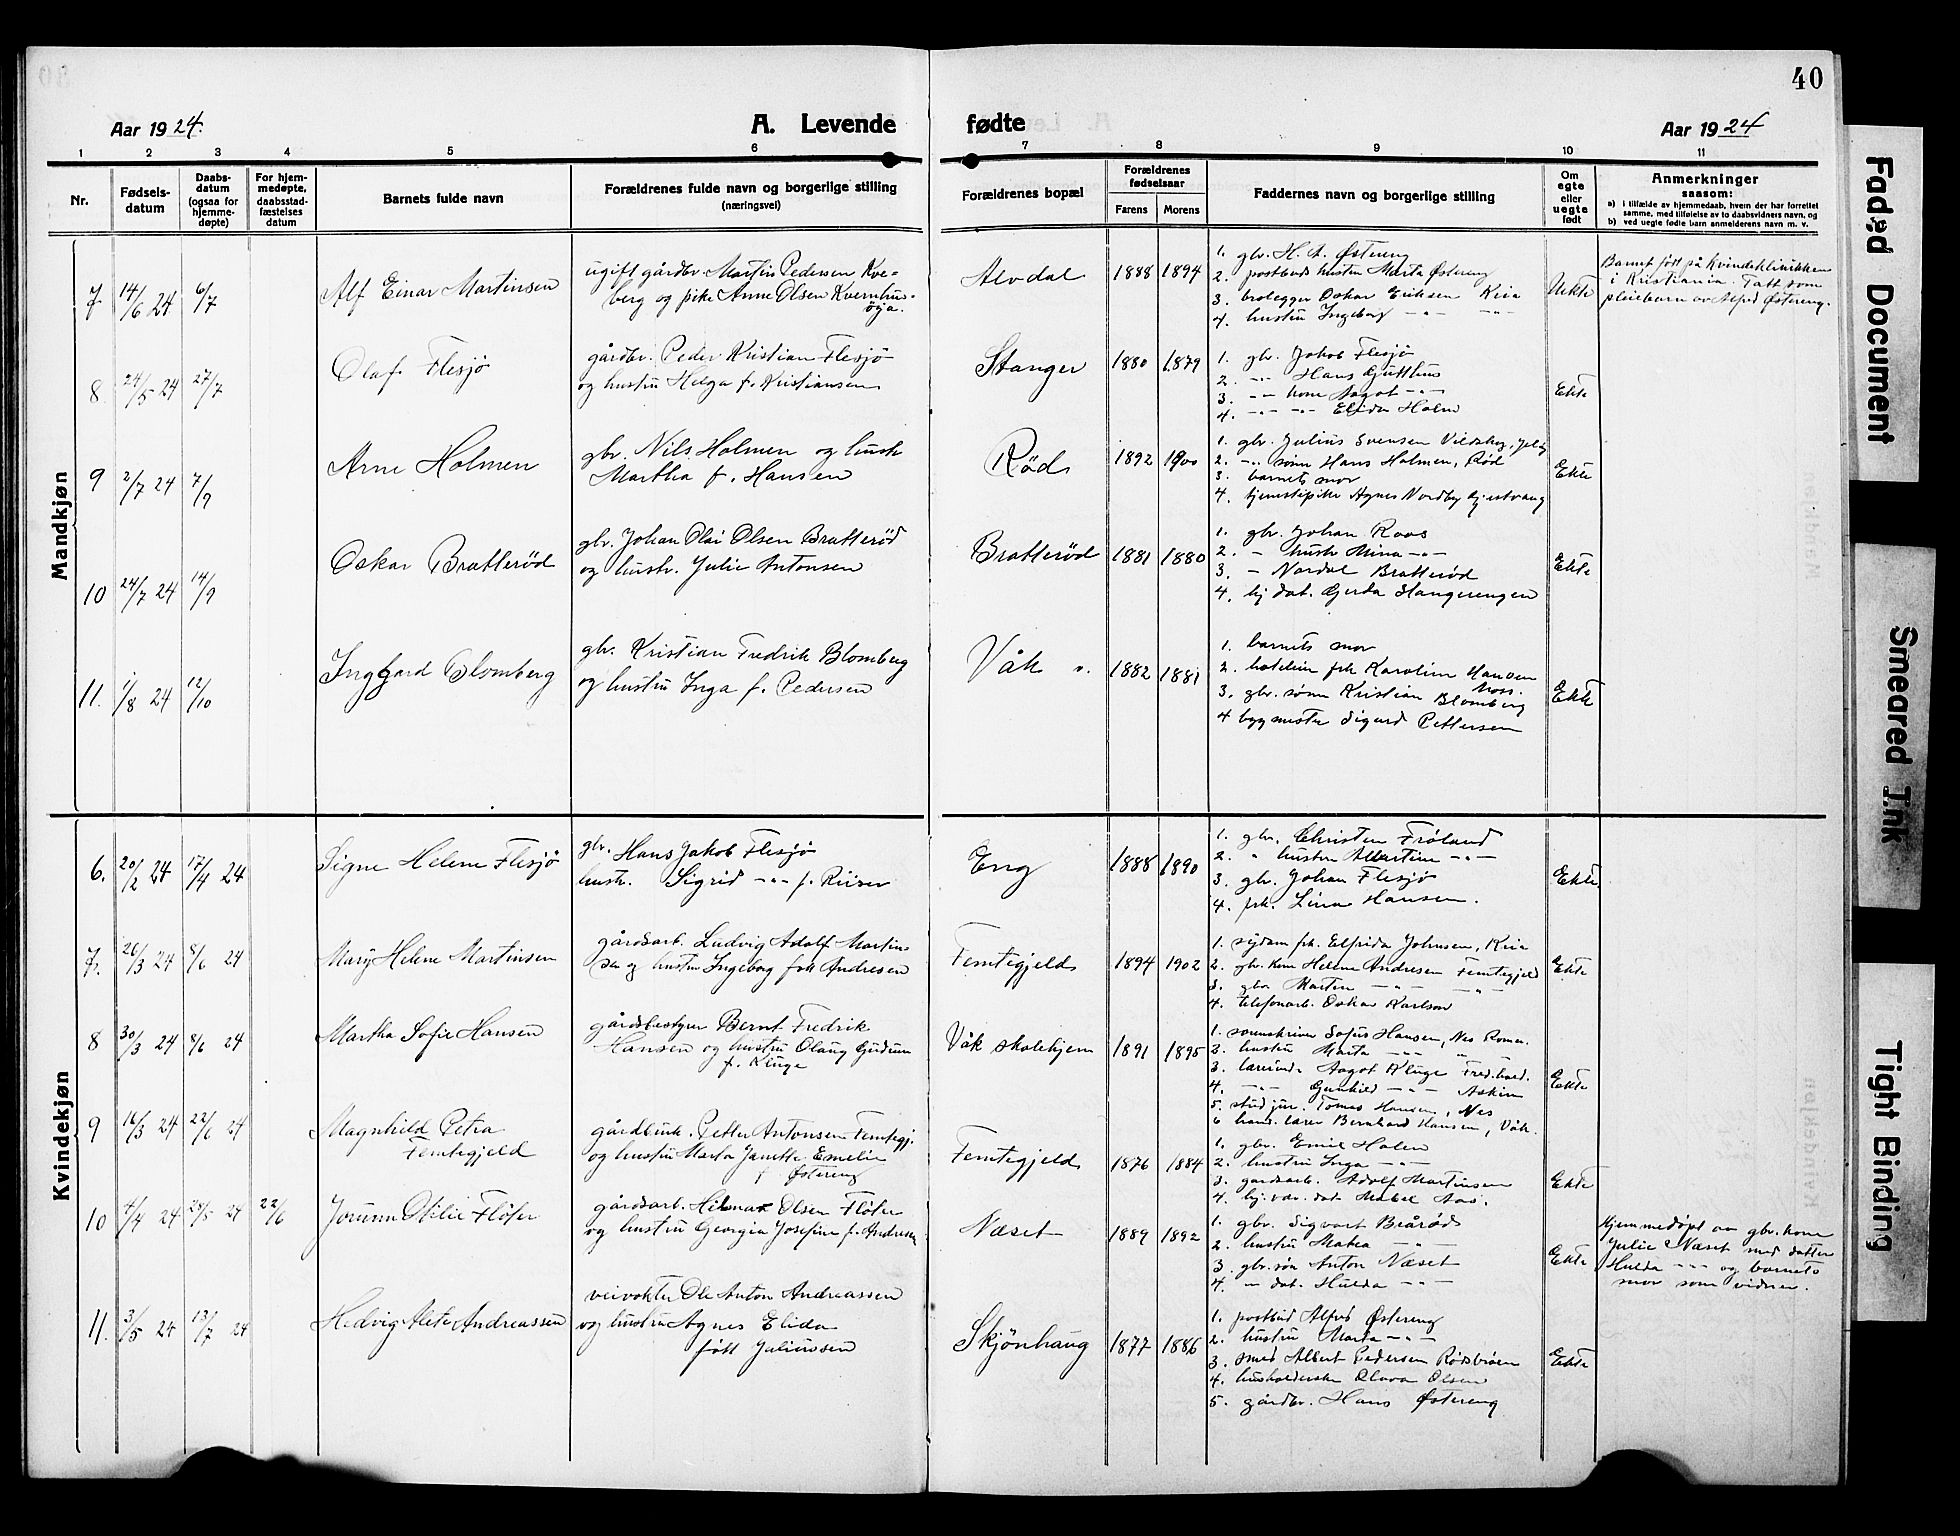 40
Aar 1924.
A. Levende
fødte
Aar 1924
1 2 3 4 5 6 7 8 9 10 11
Nr.
Fødsels-
datum
Daabs-
datum
(ogsaa for
hjemme-
døpte)
For hjem-
medøpte,
daabsstad-
fæstelses
datum
Barnets fulde navn
Forældrenes fulde navn og borgerlige stilling
(næringsvei)
Forældrenes bopæl
Forældrenes
fødselsaar
Farens Morens
Faddernes navn og borgerlige stilling
Om
egte
eller
uegte
født
Anmerkninger
saasom:
a) i tilfælde av hjemmedaab, hvem der har forrettet
samme, med tilføielse av to daabsvidners navn, og
b) ved uegte fødte barn anmelderens navn m. v.
Mandkjøn
7 14/6 24 6/7
Alf Einar Martinsen
ugift gårdbr. Martin Pedersen Kve-
berg og pike Anne Olsen Kvernhus-
øya.
Alvdal
1888 1894
1. gbr. H. A. Østereng
2. postbuds hustru Marta Østereng
3. brolegger Oskar Eriksen Kria
4. hustru Ingeborg -"- -"-
Uekte
Barnet født på kvindeklinikken
i Kristiania. Tatt som
pleiebarn av Alfred Østereng.
8. 24/5 24 27/7
Olaf Flesjø
gårdbr. Peder Kristian Flesjø
og hustru Helga f. Kristiansen
Stanger
1880 1879
1. gbr. Jakob Flesjø
2. -"- Hans Gutthus
3. -"- kone Aagot -"-
4. -"- -"- Elida Holm
Ekte
9 2/7 24 7/9
Arne Holmen
gbr. Nils Holmen og hustr.
Martha f. Hansen
Rød
1892 1900
1. gbr. Julius Svensen Vildskog, Jeløy
2. -"- sønn Hans Holmen, Rød
3. barnets mor
4. tjenestepike Agnes Nordby
Ekte
10 24/7 24 14/9
Oskar Bratterød
gbr. Johan Olai Olsen Bratterød
og hustr. Julie Antonsen
Bratterød
1881 1880
1. gbr. Johan Roos
2. - hustr. Mina -"-
3. - Nordal Bratterød
4. hj. dat. Gerda Hangerengen
Ekte
11. 1/8 24 12/10
Inggard Blomberg
gbr. Kristian Fredrik Blomberg
og hustru Inga f. Pedersen
Våk
1882 1881
1. barnets mor
2. frk Karoline Hansen
Moss.
3. gbr. sønn Kristian Blomberg
4 bygmester Sigurd Pettersen
Ekte
Kvindekjøn
6. 20/2 24 17/4 24
Signe Helene Flesjø
gbr. Hans Jakob Flesjø
hustr. Sigrid -"- f. Riiser
Eng
1888 1890
1. gbr. Christen Frøland
2. " hustru Albertine -"-
3. gbr. Johan Flesjø
4. frk. Lina Hansen.
Ekte
7. 26/3 24 8/6 24
Mary Helene Martinsen
gårdsarb. Ludvig Adolf Martin-
sen og hustru Ingeborg født Andresen
Femtegjeld
1894 1902
1. sydam frk. Elfrida Johnsen, Kria
2. gbr. kone Helene Andresen Femtegjeld
3. gbr Martin -"- -"-
4. telefonarb. Oskar Karlson
Ekte
8 30/3 24 8/6 24
Martha Sofie Hansen
gårdsbestyrer Bernt Fredrik
Hansen og hustru Olaug Gudrun
f. Kluge
Våk skolehjem
1891 1895
1. sorenskriver Sofus Hansen, Nes Romer.
2. hustru Marta -"- "
3. lærerinde Aagot Kluge Fred.hald.
4. -"- Gunhild -"- Askim
5. stud jur. Tomas Hansen, Nes
6 hand. lærer Bernhard Hansen, Våk.
Ekte
9 16/3 24 22/6 24
Magnhild Petra
Femtegjeld
gårdbruk. Petter Antonsen Femtegj.
og hustru Marta Janette Emelie
f Østereng
Femtegjeld
1876 1884
1. gbr. Emil Holm
2. hustru Inga -"-
3. gardsarb. Adolf Martinsen
4. hj. vær. dat Mabel Aas.
Ekte
10 4/4 24 24/5 24 22/6
Jorunn Otilie Fløter
gårdsarb. Hilmar Olsen Fløter
og hustru Georgia Josefine f. Andresen
Næset
1889 1892
1. gbr. Sigvart Brårød
2. hustru Matea -"-
3. gbr. søn Anton Næset
4. -"- dat. Hulda -"-
Ekte
Hjemmedøpt av gbr. kone
Julie Næset med datter
Hulda -"- og barnets
mor som vidner.
11. 3/5 24 13/7 24
Hedvig Alete Andreassen
veivokter Ole Anton Andreassen
og hustru Agnes Elida
født Juliussen
Skjønhaug
1877 1886
1. postbud Alfred Østereng
2. hustru Marta -"-
3. smed Albert Pedersen Rødsbråten
4. husholderske Olava Olsen
5. gårdbr. Hans Østereng
Ekte
Faded Document
Smeared Ink
Tight Binding